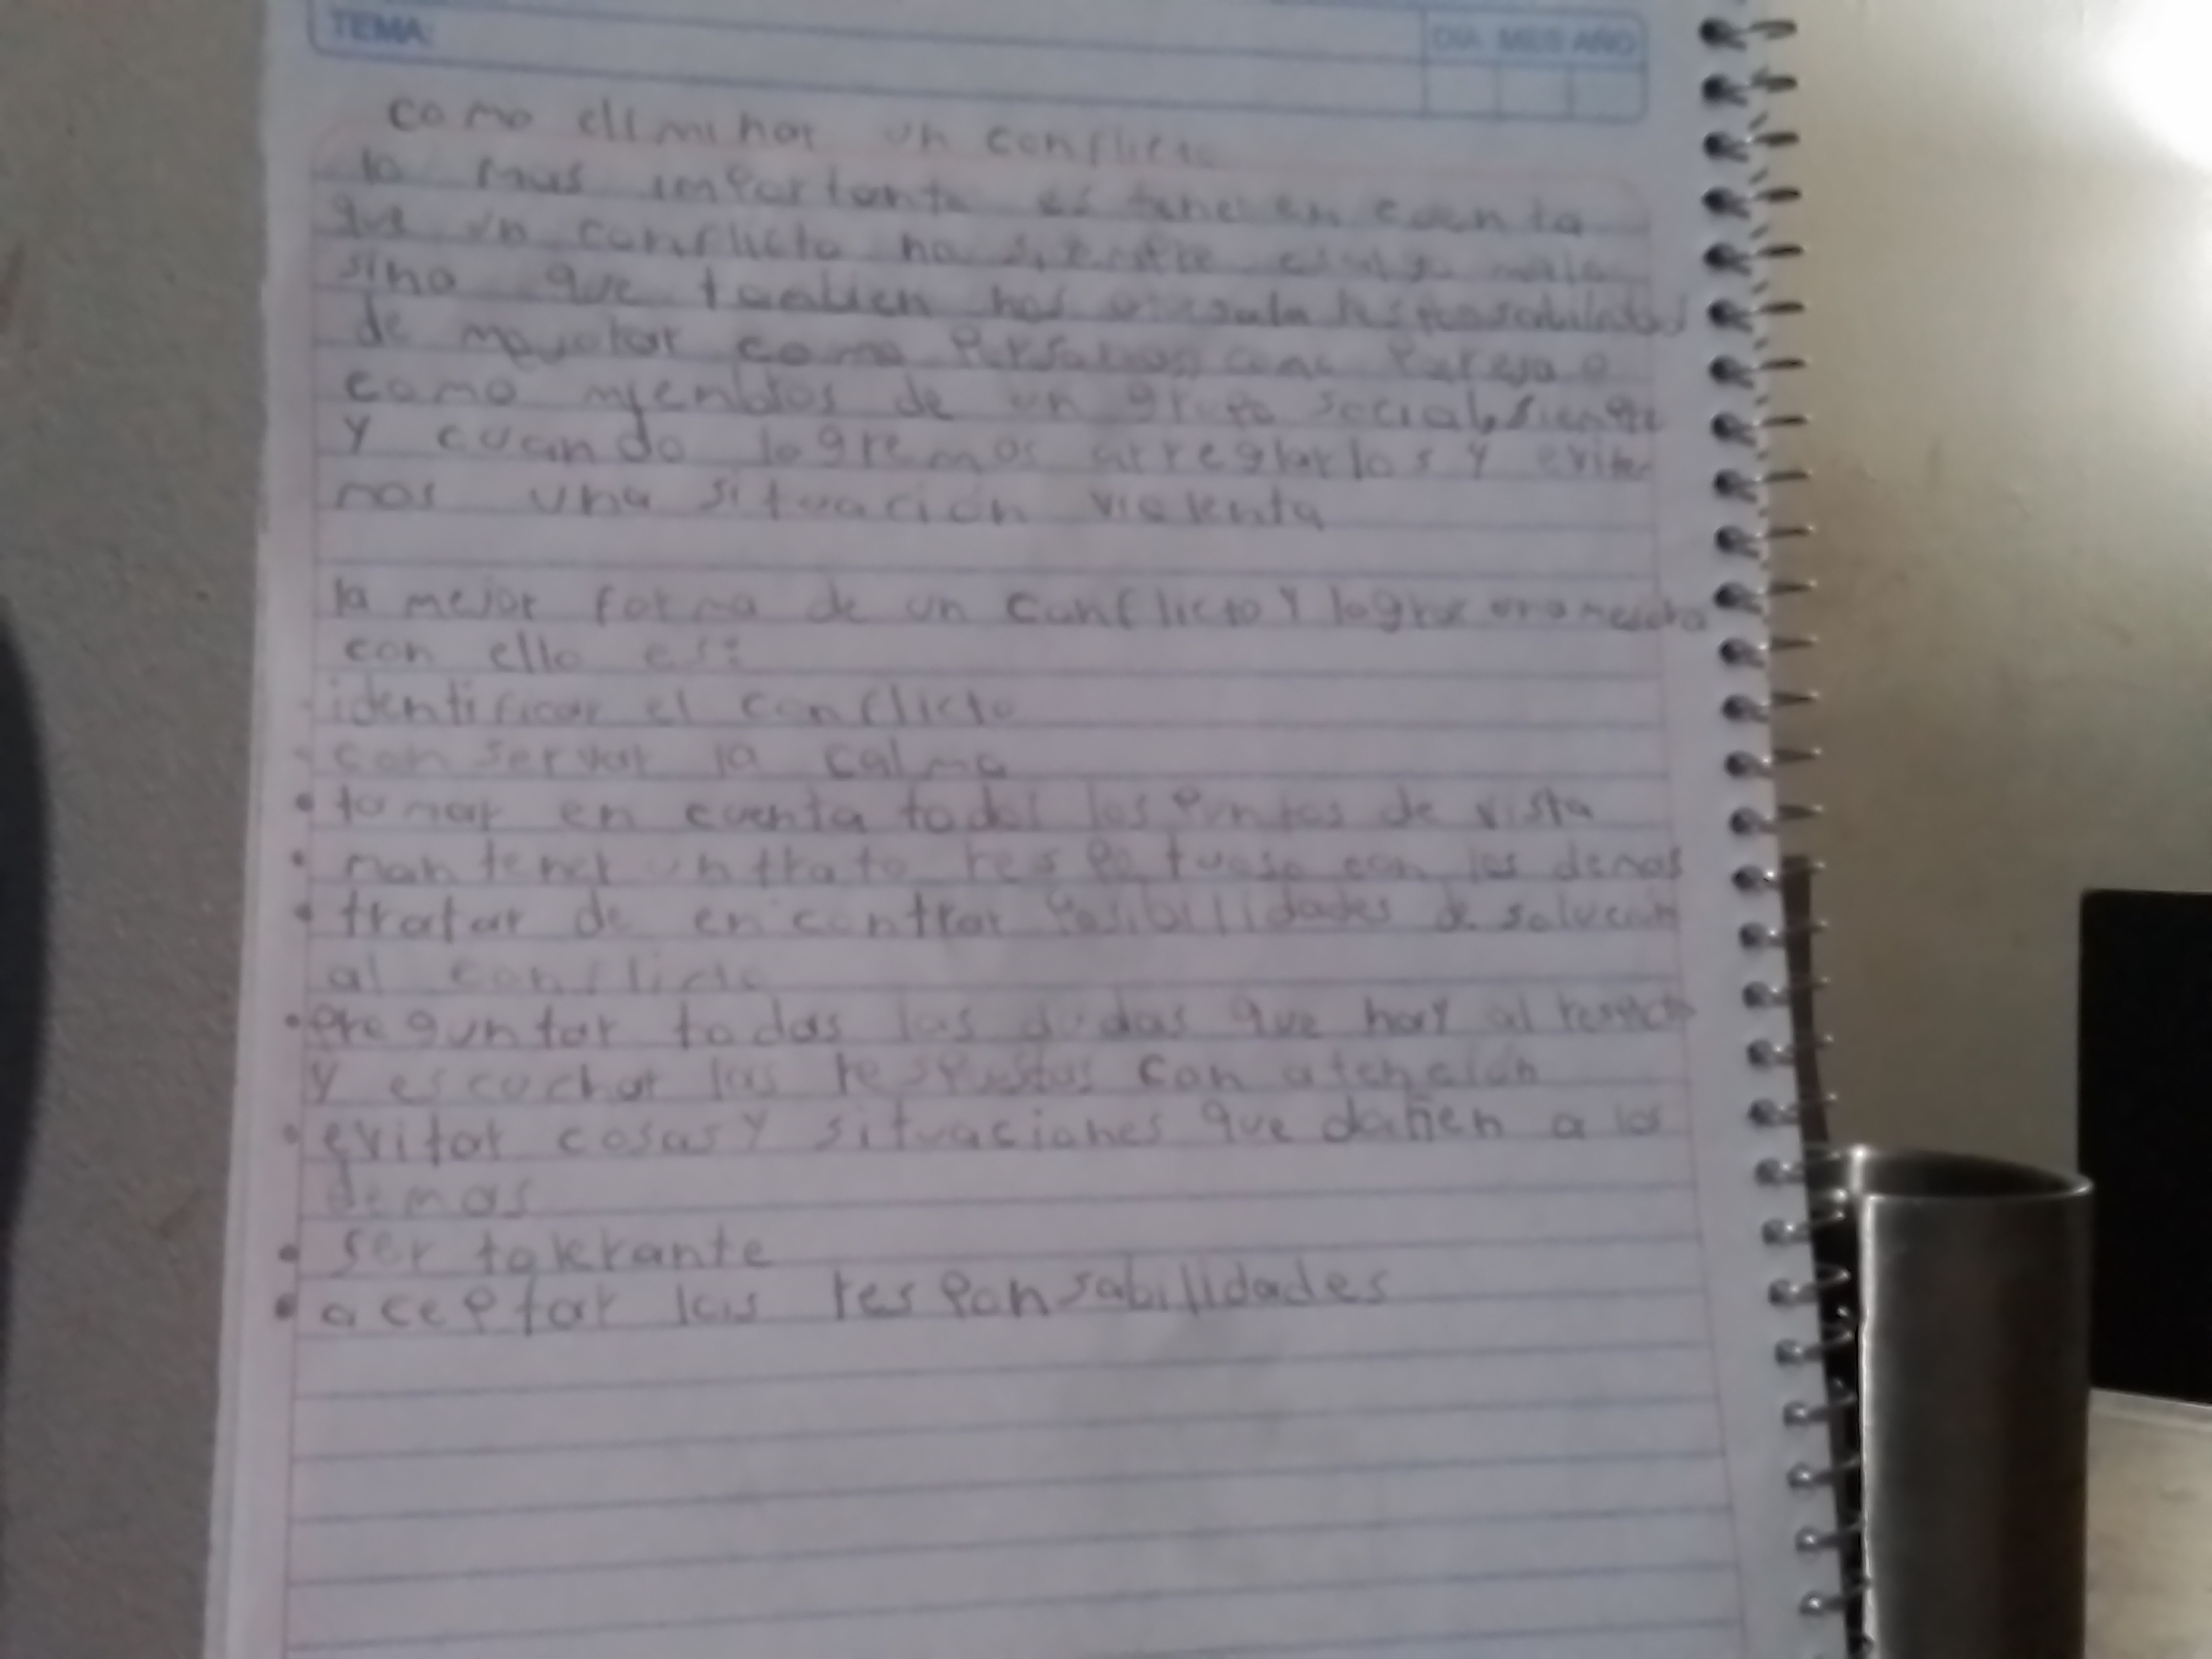 TEMA:
DIA MES AÑO
como eliminar un conflicto
lo mas importante es tener en cuenta
que un conflicto no siempre es algo malo
sino que tambien nos
de mejorar como personas como pareja o
como miembros de un grupo social, siempre
y cuando logremos arreglarlos y evite
mos una situación violenta
la mejor forma de un conflicto y lograr una
con ello es:
identificar el conflicto
conservar la calma
• tomar en cuenta todos los puntos de vista
• mantener un trato respetuoso con los demas
• tratar de encontrar posibilidades de solución
al conflicto
• preguntar todas las dudas que hay al respecto
y escuchar las respuestas con atención
• evitar cosas y situaciones que dañen a los
demas
• ser tolerante
• aceptar las responsabilidades